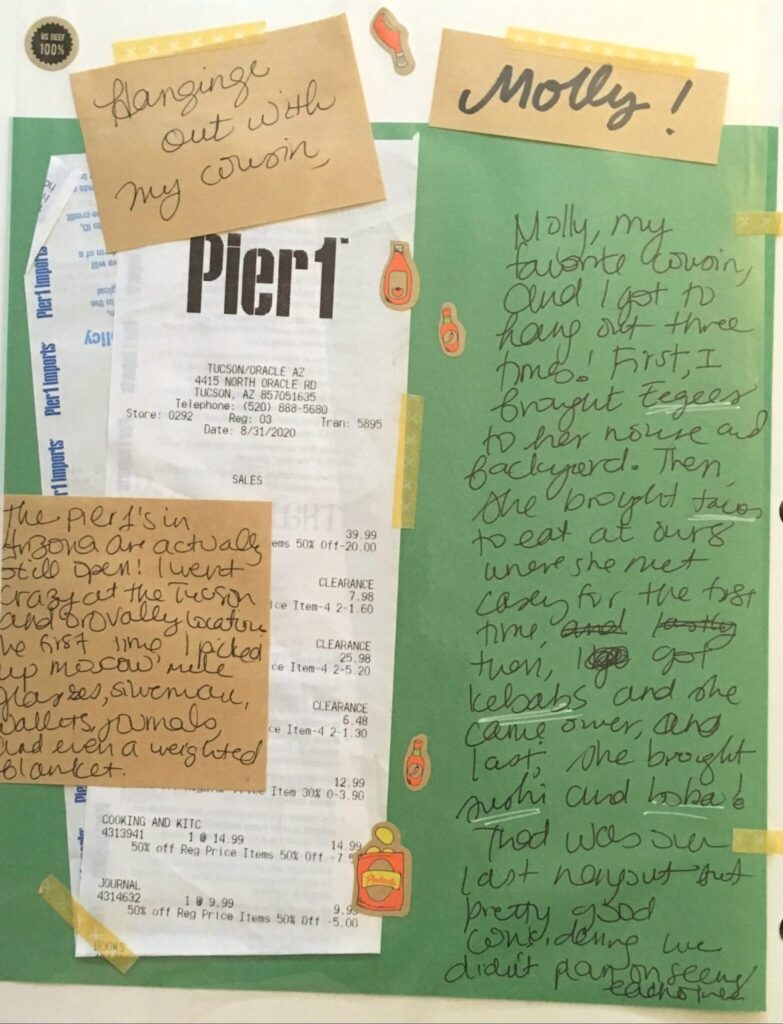 US BEEF
100%
Hanginge
out with
my cousin,
Molly!
Pier1
TUCSON/ORACLE AZ
4415 NORTH ORACLE RD
TUCSON, AZ 857051635
Telephone: (520) 888-5680
Store: 0292 Reg: 03 Tran: 5895
Date: 8/31/2020
SALES
39.99
ems 50% Off-20.00
CLEARANCE
7.98
ice Item-4 2-1.60
CLEARANCE
25.98
e Item-4 2-5.20
CLEARANCE
6.48
ce Item-4 2-1.30
12.99
Regular Price Item 30% 0-3.90
COOKING AND KITC
4313941 1 @ 14.99 14.99
50% off Reg Price Items 50% Off -7.5
JOURNAL
4314632 1 @ 9.99 9.99
50% off Reg Price Items 50% Off -5.00
BOOKS
Pier1 Imports
Pier1 Imports
Pier1 Imports
The pier1's in
Arizona are actually
still open! I went
crazy at the Tucson
and orovally location.
he first time I picked
up moscow mule
glasses, silverware,
wallets, journals,
and even a weighted
blanket.
Molly, my
favorite cousin,
and I got to
hang out three
times! First, I
brought Eegees
to her house and
backyard. Then,
she brought tacos
to eat at ours
where she met
casey for the first
time, and lastly
then, I got
kebabs and she
came over, and
last, she brought
sushi and boba!
That was our
last hangout but
pretty good
considering we
didn't plan on seeing
each other